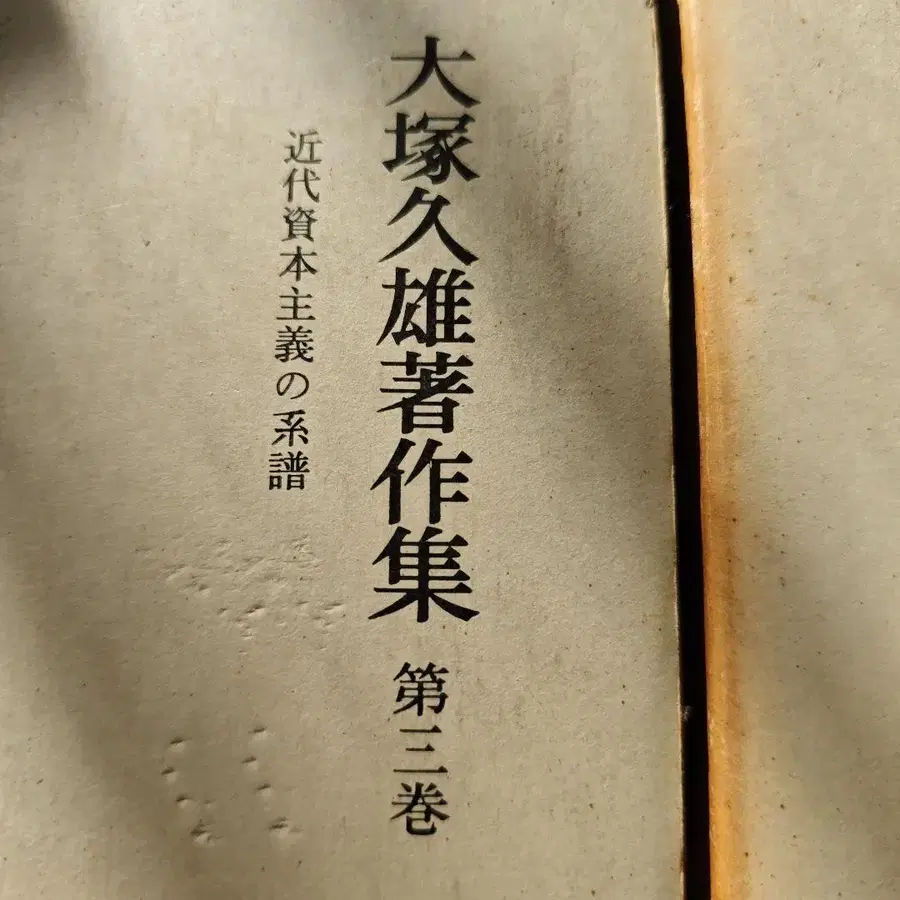 大塚久雄著作集 第三巻
近代資本主義の系譜